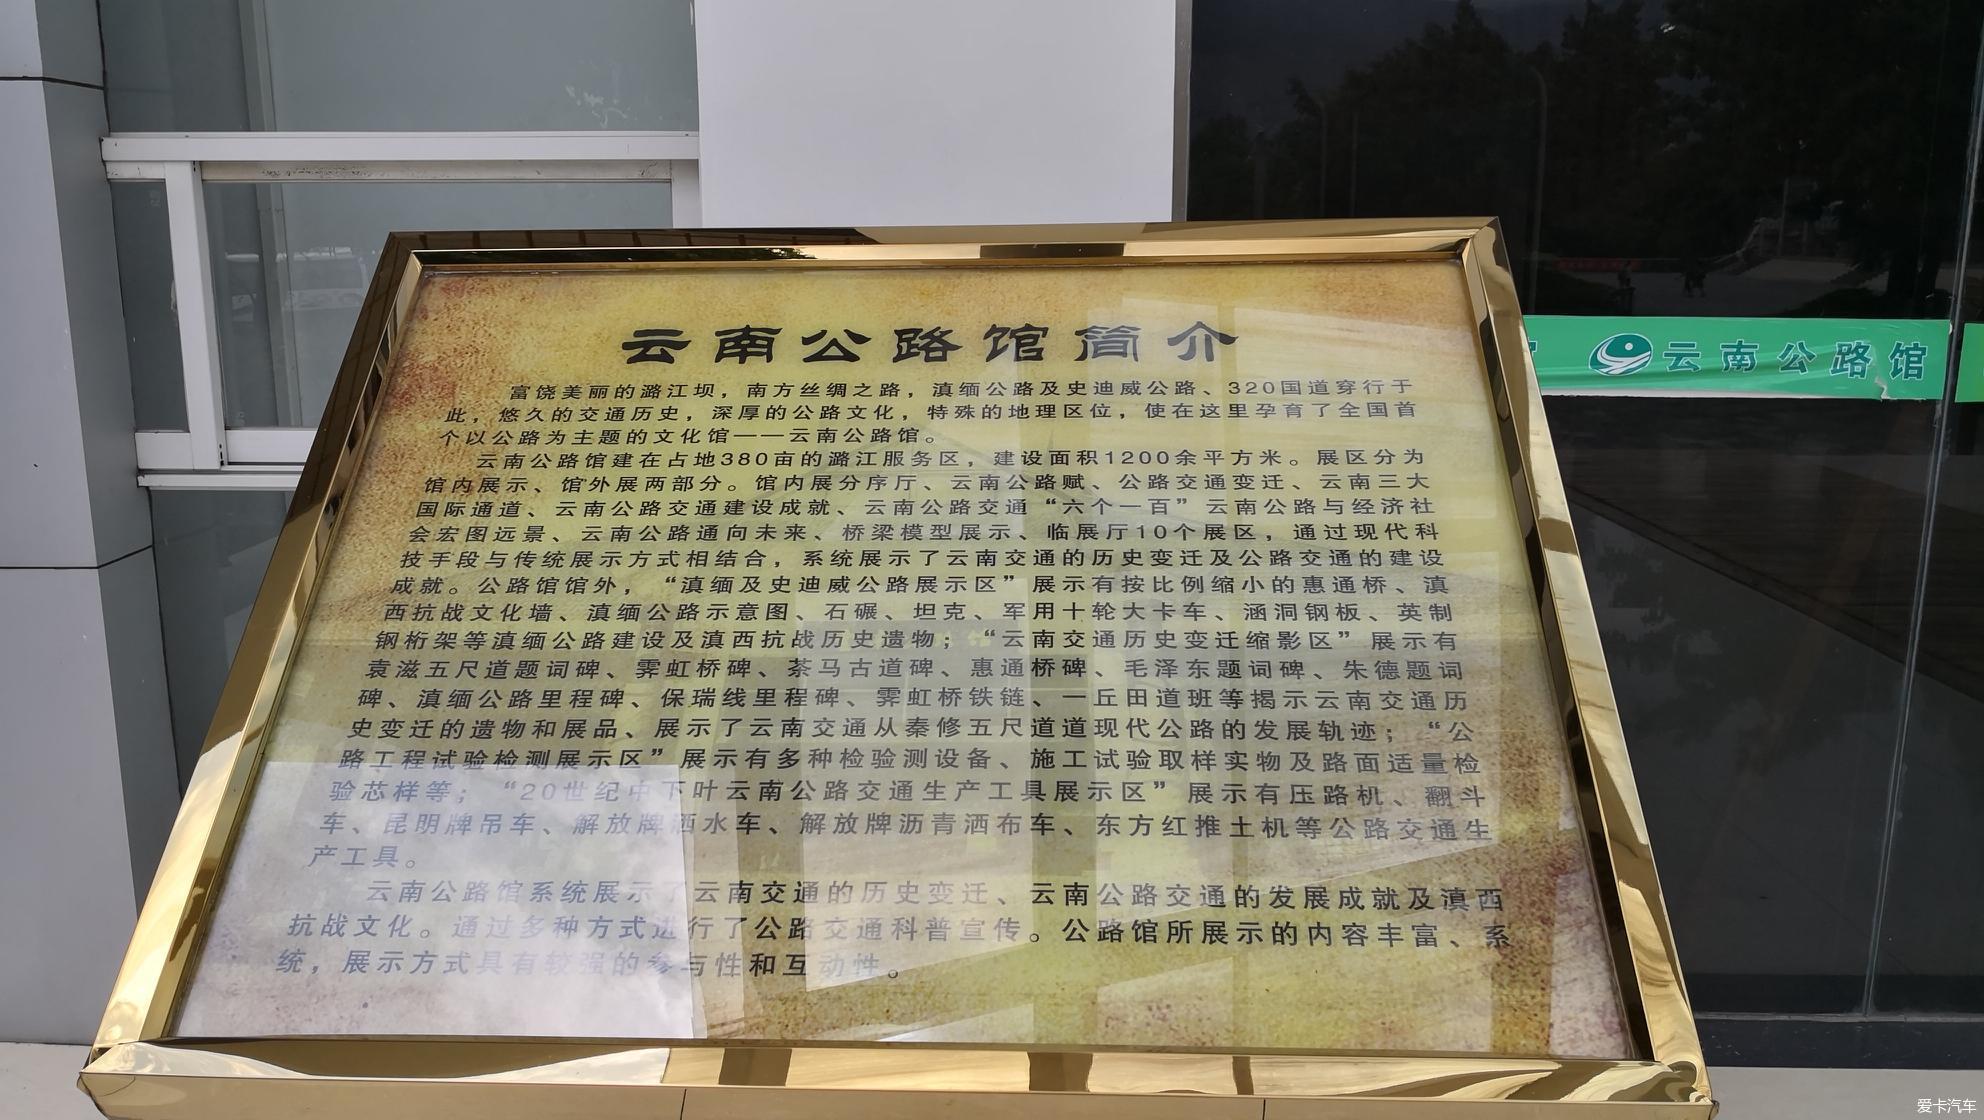 云南公路馆简介
富饶美丽的潞江坝，南方丝绸之路，滇缅公路及史迪威公路、320国道穿行于
此，悠久的交通历史，深厚的公路文化，特殊的地理区位，使在这里孕育了全国首
个以公路为主题的文化馆——云南公路馆。
云南公路馆建在占地380亩的潞江服务区，建设面积1200余平方米。展区分为
馆内展示、馆外展两部分。馆内展分序厅、云南公路赋、公路交通变迁、云南三大
国际通道、云南公路交通建设成就、云南公路交通“六个一百”云南公路与经济社
会宏图远景、云南公路通向未来、桥梁模型展示、临展厅10个展区，通过现代科
技手段与传统展示方式相结合，系统展示了云南交通的历史变迁及公路交通的建设
成就。公路馆馆外，“滇缅及史迪威公路展示区”展示有按比例缩小的惠通桥、滇
西抗战文化墙、滇缅公路示意图、石碾、坦克、军用十轮大卡车、涵洞钢板、英制
钢桁架等滇缅公路建设及滇西抗战历史遗物；“云南交通历史变迁缩影区”展示有
袁滋五尺道题词碑、霁虹桥碑、茶马古道碑、惠通桥碑、毛泽东题词碑、朱德题词
碑、滇缅公路里程碑、保瑞线里程碑、霁虹桥铁链、一丘田道班等揭示云南交通历
史变迁的遗物和展品、展示了云南交通从秦修五尺道道现代公路的发展轨迹；“公
路工程试验检测展示区”展示有多种检验测设备、施工试验取样实物及路面适量检
验芯样等；“20世纪中下叶云南公路交通生产工具展示区”展示有压路机、翻斗
车、昆明牌吊车、解放牌洒水车、解放牌沥青洒布车、东方红推土机等公路交通生
产工具。
云南公路馆系统展示了云南交通的历史变迁、云南公路交通的发展成就及滇西
抗战文化。通过多种方式进行了公路交通科普宣传。公路馆所展示的内容丰富、系
统，展示方式具有较强的参与性和互动性。
云南公路馆
爱卡汽车